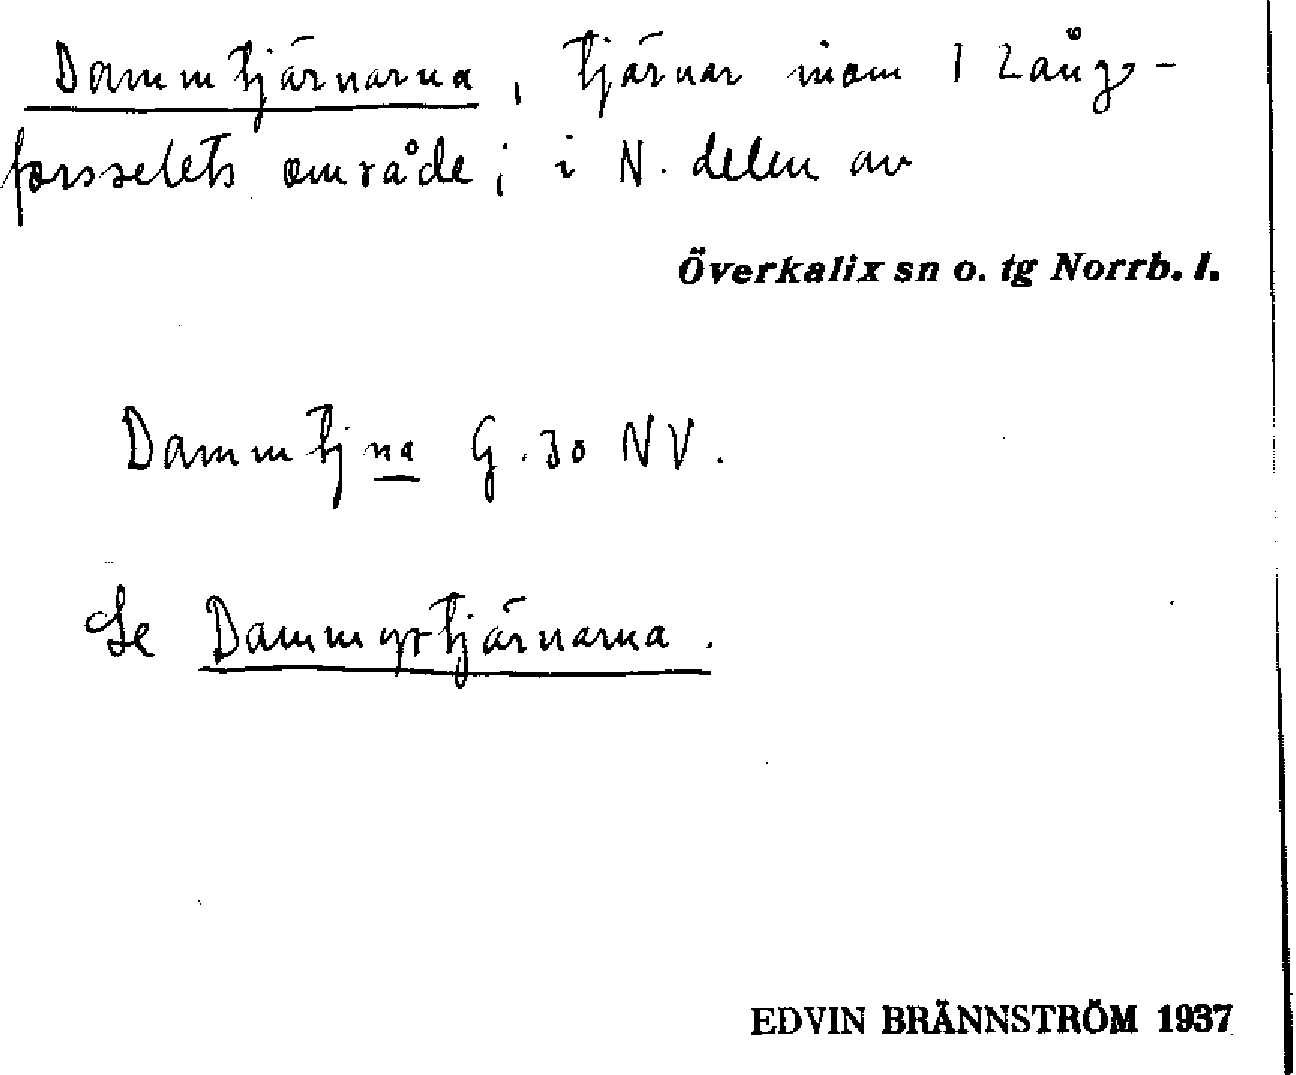 Dammtjärnarna, tjärnar inom 1 Lång-
forsselets område; i N. delen av
Överkalix sn o. tg Norrb. l.
Dammtjna G.30 NV.
Se Dammyrtjärnarna.
EDVIN BRÄNNSTRÖM 1937